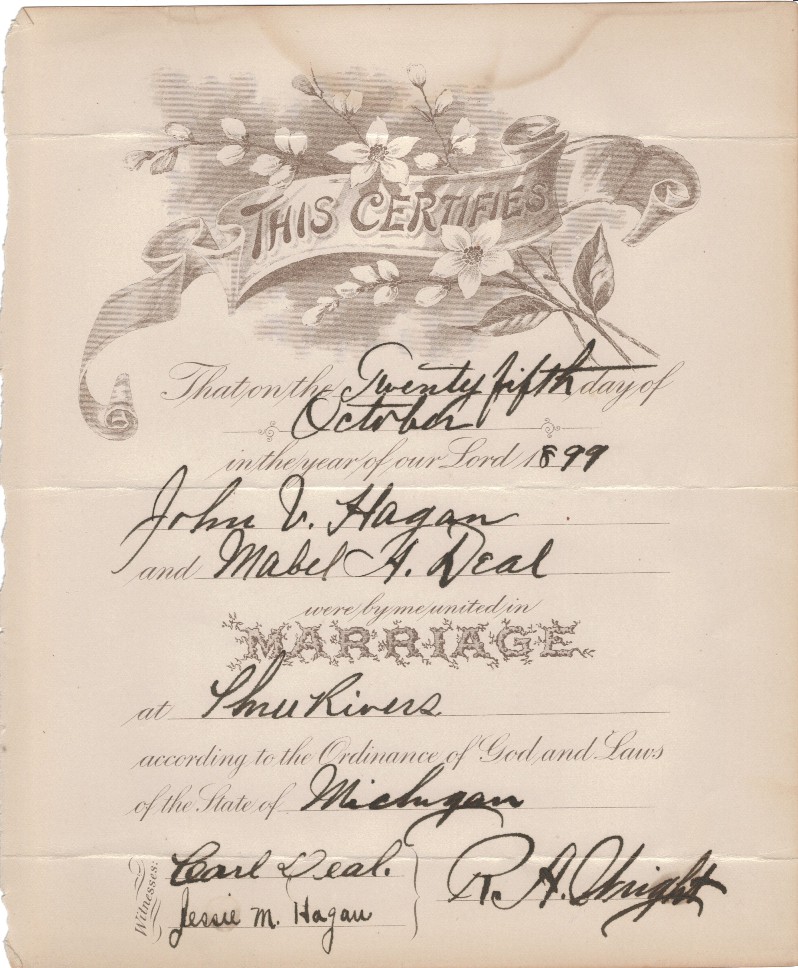 THIS CERTIFIES
That on the Twenty fifth day of
October
in the year of our Lord 1899
John V. Hagan
and Mabel A. Deal
were by me united in
MARRIAGE
at Three Rivers
according to the Ordinance of God and Laws
of the State of Michigan
Witnesses:
Carl Deal.
Jessie M. Hagan
R. A. Wright